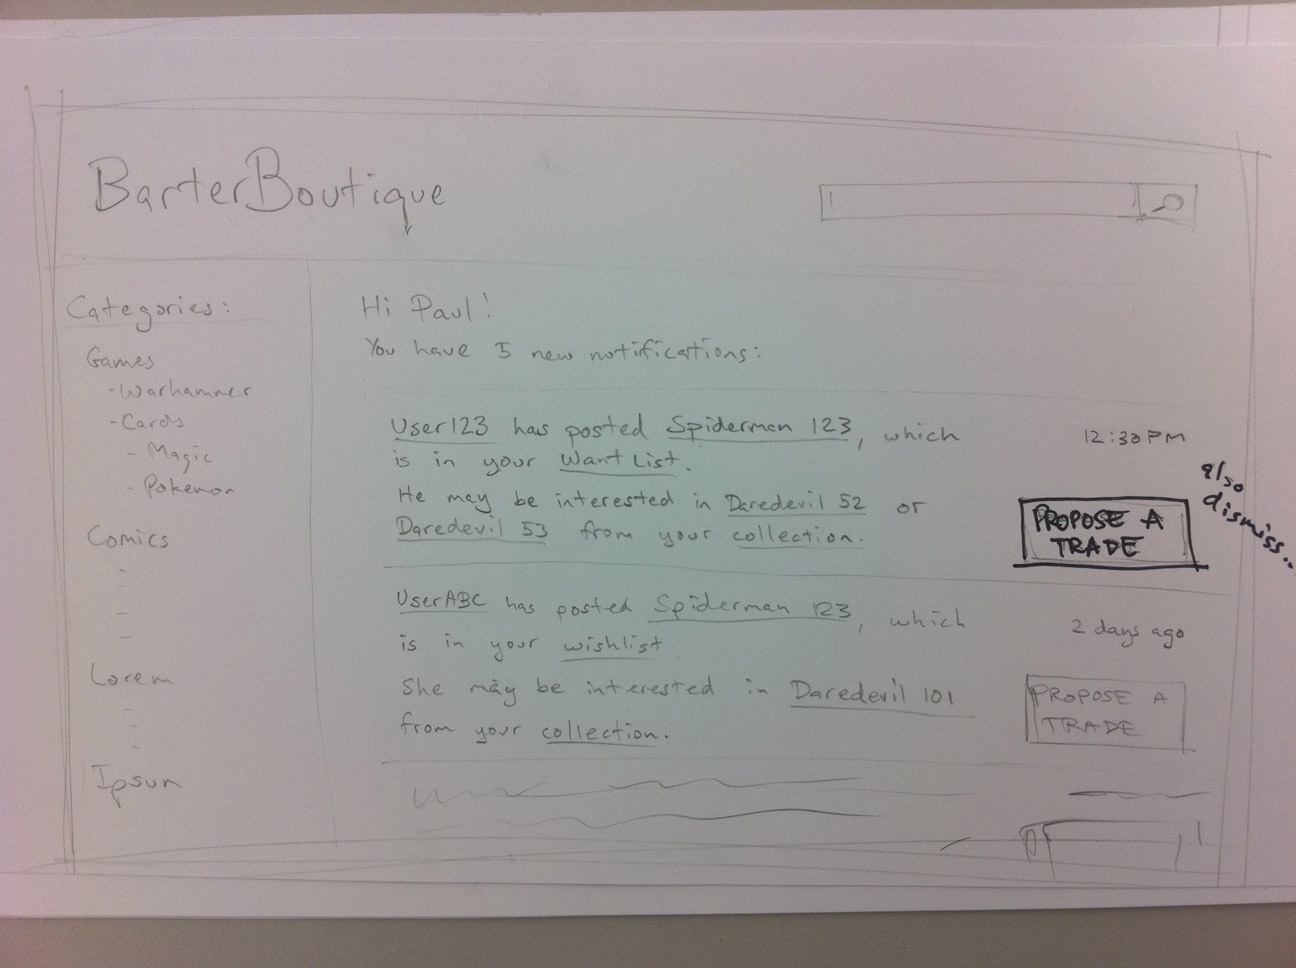 BarterBoutique
Categories:
Games
-Warhammer
-Cards
- Magic
- Pokemon
Comics
Lorem
Ipsum
Hi Paul!
You have 5 new notifications:
User123 has posted Spiderman 123, which
is in your Want List.
He may be interested in Daredevil 52 or
Daredevil 53 from your collection.
12:30PM
PROPOSE A
TRADE
also
dismiss...
UserABC has posted Spiderman 123, which
is in your wishlist
She may be interested in Daredevil 101
from your collection.
2 days ago
PROPOSE A
TRADE